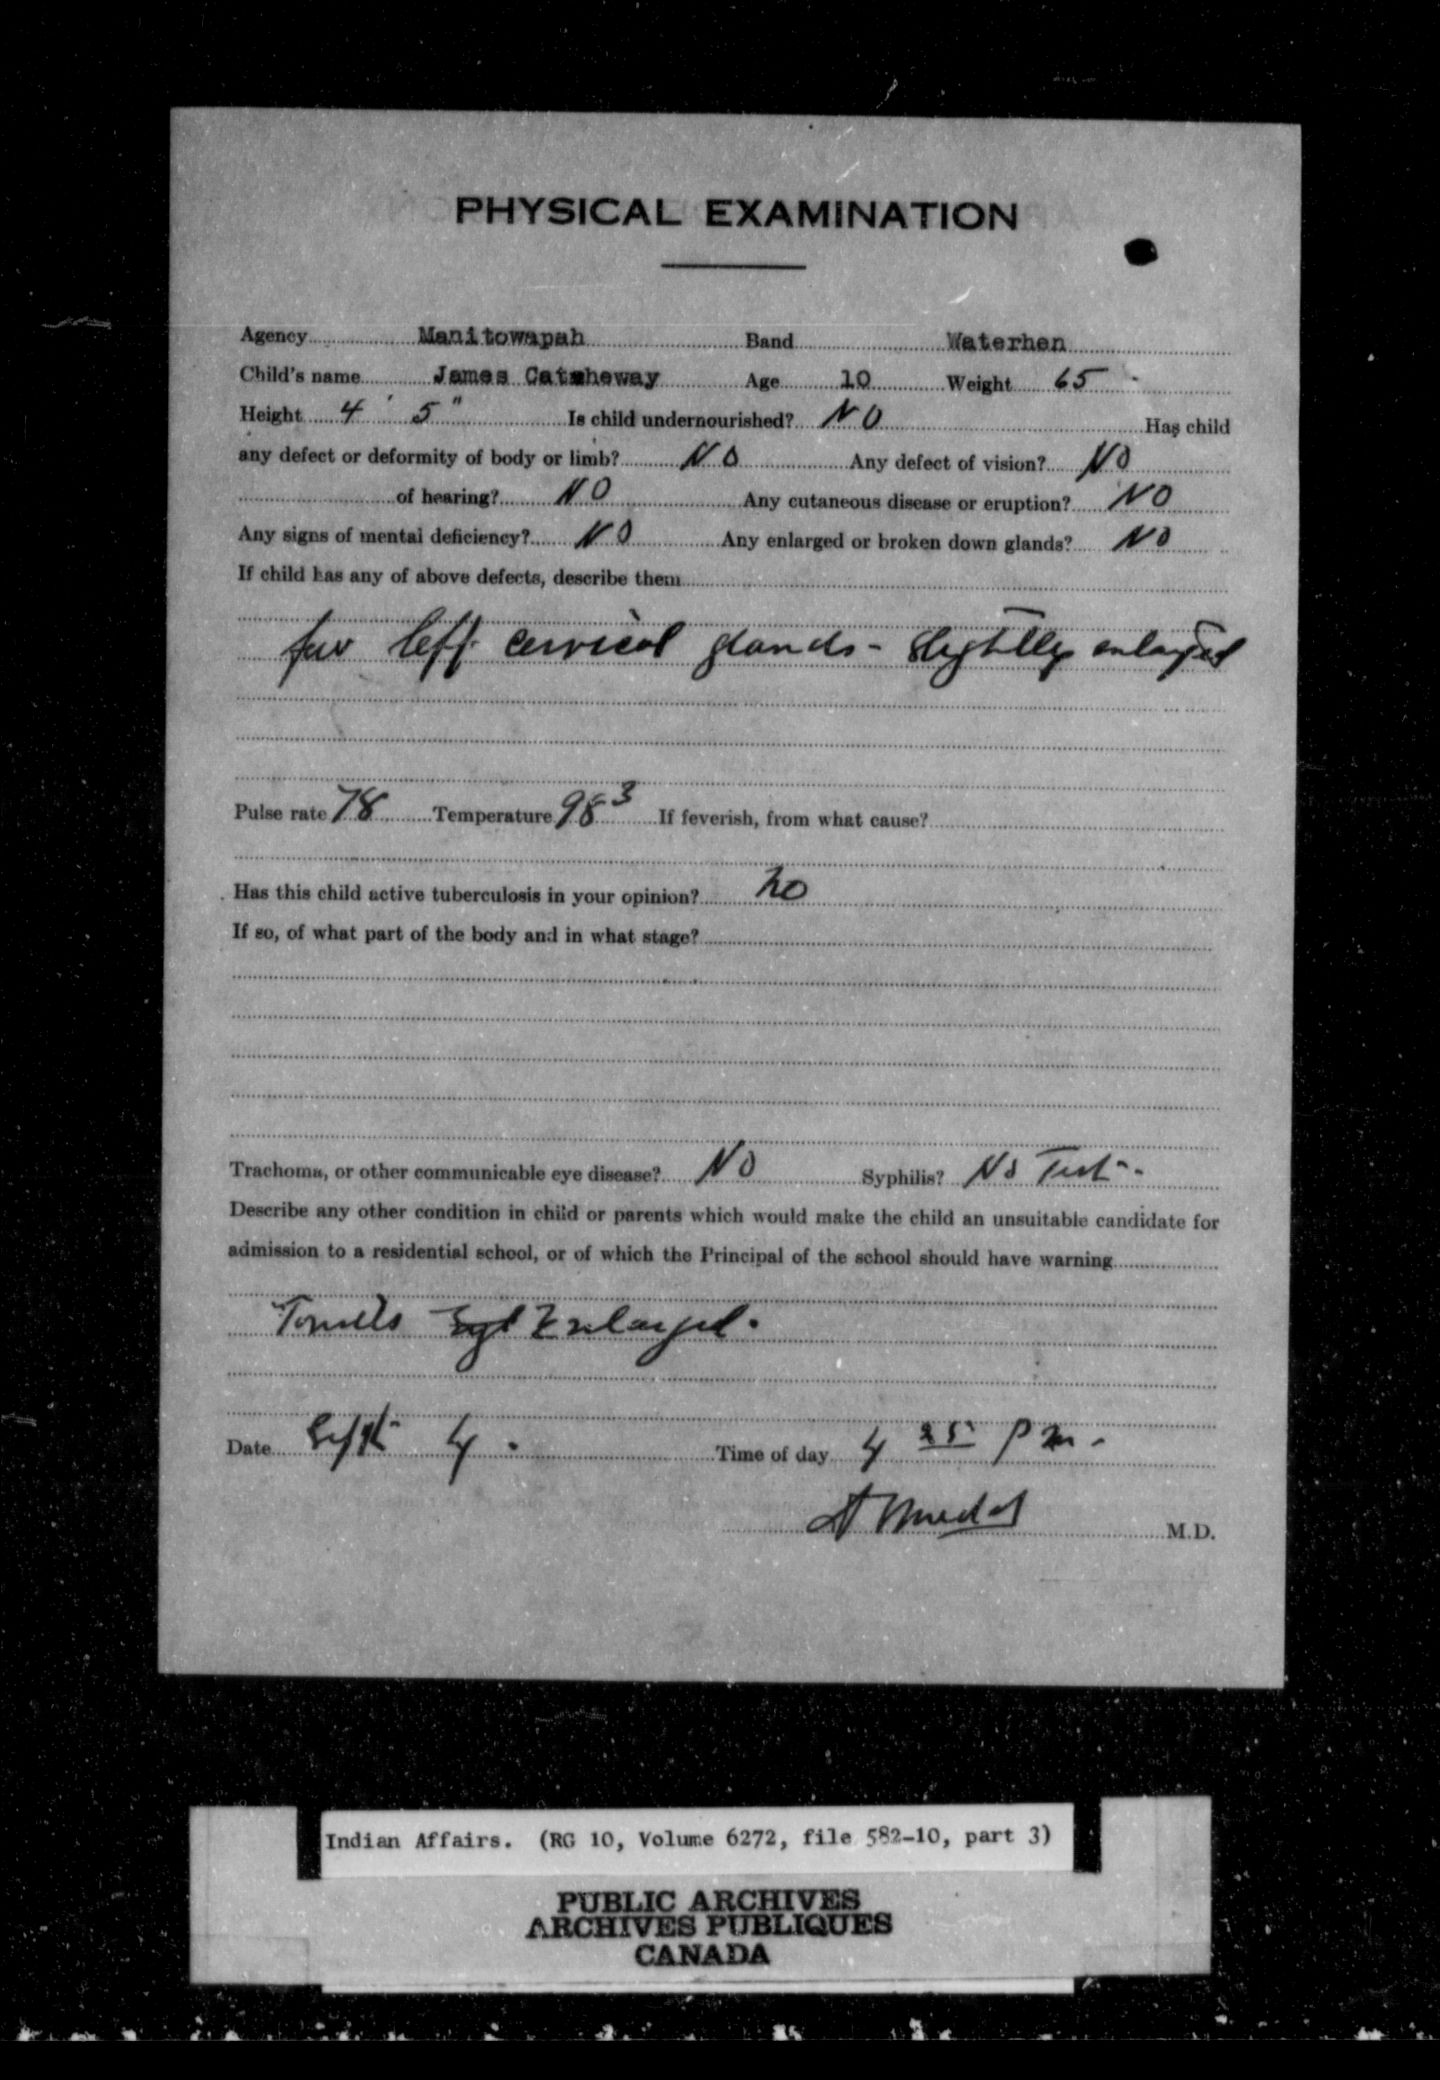 PHYSICAL EXAMINATION
Agency Manitowapah Band Waterhen
Child's name James Catcheway Age 10 Weight 65
Height 4' 5" Is child undernourished? NO Has child
any defect or deformity of body or limb? NO Any defect of vision? NO
of hearing? NO Any cutaneous disease or eruption? NO
Any signs of mental deficiency? NO Any enlarged or broken down glands? NO
If child has any of above defects, describe them
few left cervical glands - slightly enlarged
Pulse rate 78 Temperature 98 3 If feverish, from what cause?
Has this child active tuberculosis in your opinion? no
If so, of what part of the body and in what stage?
Trachoma, or other communicable eye disease? NO Syphilis? No Test -
Describe any other condition in child or parents which would make the child an unsuitable candidate for
admission to a residential school, or of which the Principal of the school should have warning
Tonsils Enlarged.
Date Sept 4. Time of day 4 25 pm -
M.D.
Indian Affairs. (RG 10, Volume 6272, file 582-10, part 3)
PUBLIC ARCHIVES
ARCHIVES PUBLIQUES
CANADA